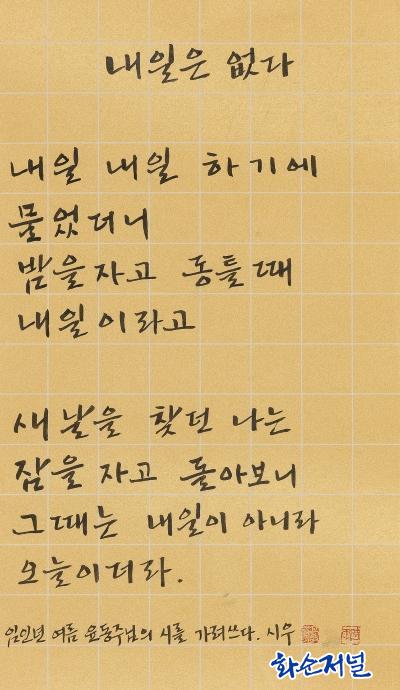 내일은 없다
내일 내일 하기에
물었더니
밤을 자고 동틀 때
내일이라고
새날을 찾던 나는
잠을 자고 돌아보니
그때는 내일이 아니라
오늘이더라.
임인년 여름 윤동주님의 시를 가려쓰다. 시우
화순저널